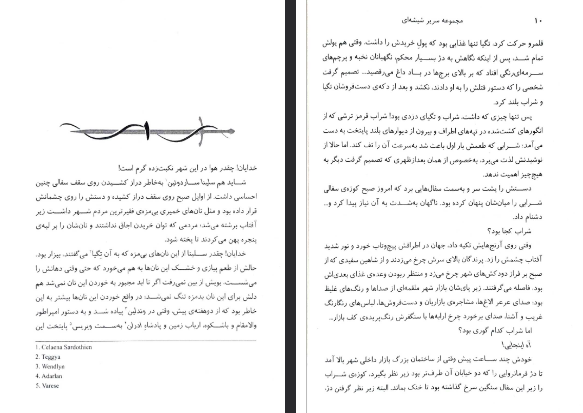 ۱۰
مجموعه سریر شیشه‌ای
قلمرو حرکت کرد. تگیا تنها غذایی بود که پول خریدش را داشت. وقتی هم پولش
تمام شد، پس از اینکه نگاهش به دژ بسیار محکم، نگهبانان نخبه و پرچم‌های
سرمه‌ای‌رنگی افتاد که بر بالای برج‌ها در باد داغ می‌رقصید... تصمیم گرفت
شخصی را که دستور قتلش را به او دادند، نکشد و بعد از دکه‌ی دست‌فروشان تگیا
و شراب بلند کرد.
پس تنها چیزی که داشت، شراب و تگیای دزدی بود! شراب قرمز ترشی که از
انگورهای کشت‌شده در تپه‌های اطراف و بیرون از دیوارهای بلند پایتخت به دست
می‌آمد؛ شرابی که طعمش بار اول باعث شد به‌سرعت آن را تف کند. اما حالا از
نوشیدنش لذت می‌برد، به‌خصوص از همان بعدازظهری که تصمیم گرفت دیگر به
هیچ‌چیز اهمیت ندهد.
دستش را پشت سر و به‌سمت سفال‌هایی برد که امروز صبح کوزه‌ی سفالی
شرابی را میان‌شان پنهان کرده بود. ناگهان به‌شدت به آن نیاز پیدا کرد و...
دشنام داد.
شراب کجا بود؟
وقتی روی آرنج‌هایش تکیه داد، جهان در اطرافش پیچ‌وتاب خورد و نور شدید
آفتاب چشمش را زد. پرندگان بالای سرش چرخ می‌زدند و از شاهین سفیدی که از
صبح بر فراز دودکش‌های شهر چرخ می‌زد و منتظر ربودن وعده‌ی غذای بعدی‌اش
بود، فاصله می‌گرفتند. زیر پای‌شان بازار شهر ملغمه‌ای از صداها و رنگ‌های غلیظ
بود: صدای عرعر الاغ‌ها، مشاجره‌ی بازاریان و دست‌فروش‌ها، لباس‌های رنگارنگ
غریب و آشنا، صدای برخورد چرخ ارابه‌ها با سنگفرش رنگ‌پریده‌ی کف بازار...
اما شراب کدام گوری بود؟
آه اینجایی!
خودش چند ساعت پیش وقتی از ساختمان بزرگ بازار داخلی شهر بالا آمد
تا دژ فرمانروایی را که دو خیابان آن طرف‌تر بود زیر نظر بگیرد، کوزه‌ی شراب
را زیر این سفال سنگین سرخ گذاشته بود تا خنک بماند. البته زیر نظر گرفتن دژ،
خدایان! چقدر هوا در این شهر نکبت‌زده گرم است!
شاید هم سلینا ساردوتین¹ به‌خاطر دراز کشیدن روی سقف سفالی چنین
احساسی داشت. از اوایل صبح روی سقف دراز کشیده و دستش را روی چشمانش
قرار داده بود و مثل نان‌های خمیری بی‌مزه‌ی فقیرترین مردم شهر داشت زیر
آفتاب برشته می‌شد، مردمی که توان خریدن اجاق نداشتند و نان‌شان را بر لبه‌ی
پنجره پهن می‌کردند تا پخته شود.
خدایان! چقدر سلینا از این نان‌های بی‌مزه که به آن تگیا² می‌گفتند، بیزار بود.
حالش از طعم پیازی و خشک این نان‌ها به هم می‌خورد که حتی وقتی دهانش را
می‌شست، بویش از بین نمی‌رفت. اگر تا ابد مجبور به خوردن این نان نمی‌شد هم
دلش برای این نان بدمزه تنگ نمی‌شد. در واقع خوردن این نان‌ها بیشتر به این
خاطر بود که از دوهفته‌ی پیش، وقتی در وندلین³ پیاده شد و به دستور امپراطور
والامقام و باشکوه، ارباب زمین و پادشاه ادرلن⁴ به‌سمت وریس⁵ پایتخت این
1. Celaena Sardothien
2. Teggya
3. Wendlyn
4. Adarlan
5. Varese